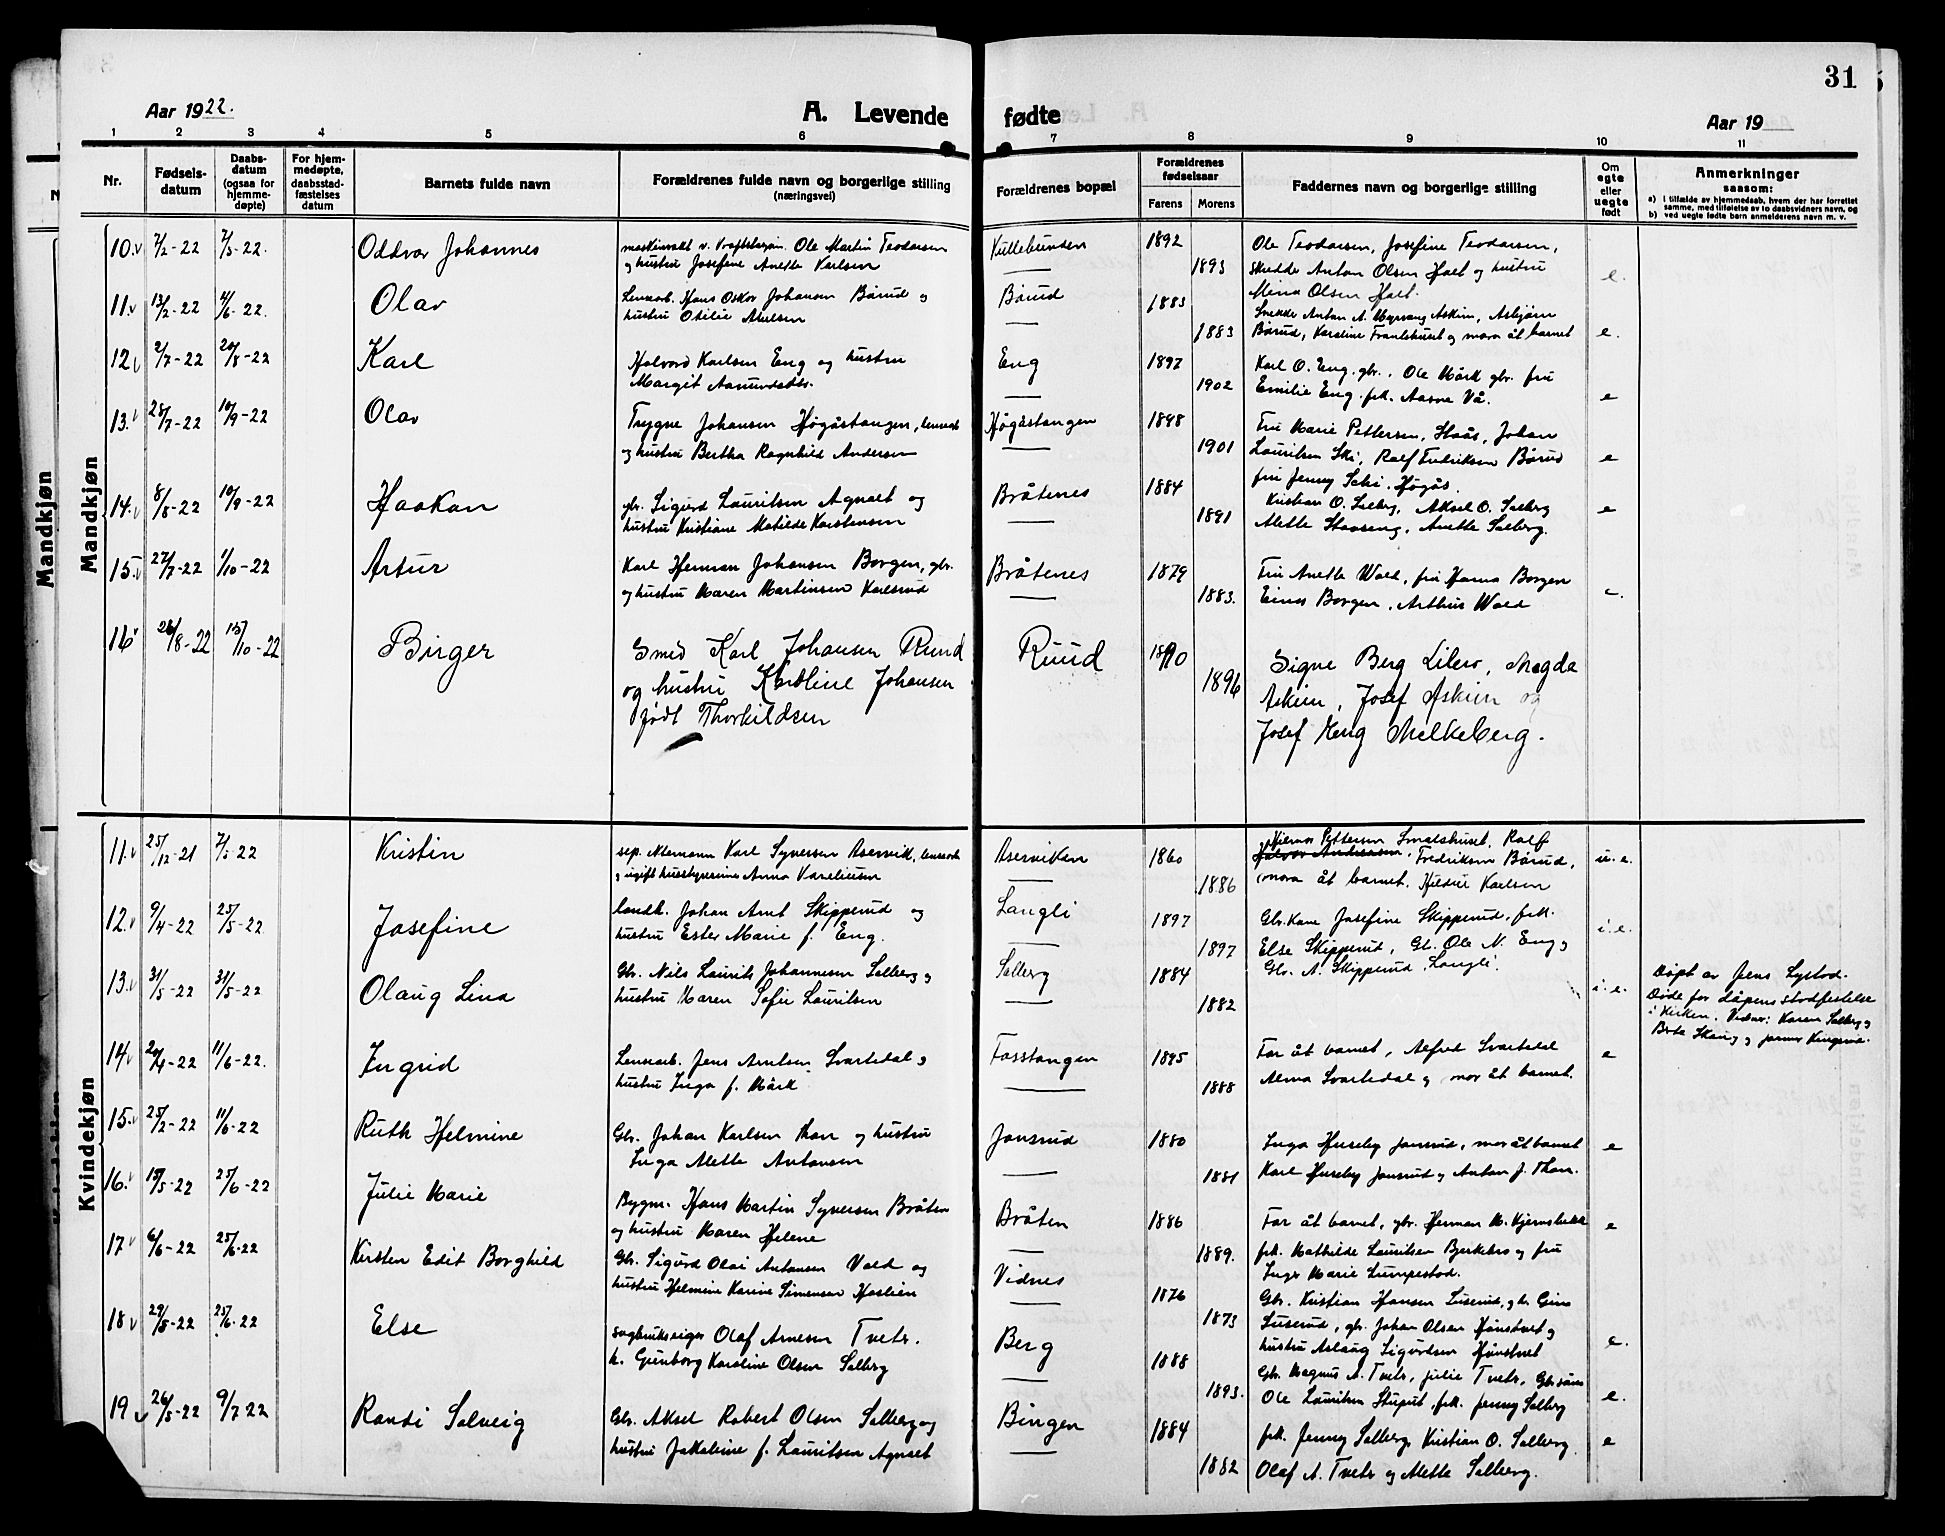 31
Aar 1922.
A. Levende fødte
Aar 19
1 2 3 4 5 6 7 8 9 10 11
Nr.
Fødsels-
datum
Daabs-
datum
(ogsaa for
hjemme-
døpte)
For hjem-
medøpte,
daabsstad-
fæstelses
datum
Barnets fulde navn
Forældrenes fulde navn og borgerlige stilling
(næringsvei)
Forældrenes bopæl
Forældrenes
fødselsaar
Farens Morens
Faddernes navn og borgerlige stilling
Om
egte
eller
uegte
født
Anmerkninger
saasom:
a) i tilfælde av hjemmedaab, hvem der har forrettet
samme, med tilføielse av to daabsvidners navn, og
b) ved uegte fødte barn anmelderens navn m. v.
Mandkjøn
Mandkjøn
10. 7/2-22 7/5-22. Oddvar Johannes Ole Martin Teodorsen Kullebunden 1892 Ole Teodorsen, Josefine Teodorsen,
og hustru Josefine Anette Karlsen 1893 Anton Olsen Holt og hustru e.
Mina Olsen Holt.
11. 13/2-22 11/6-22. Olav Lensearb. Hans Oskar Johansen Børud og Børud 1883 Anton A. Myrvang Askim, Asbjørn
hustru Otilie 1883 Børud, Karoline og mora åt barnet e.
12 2/7-22 20/8-22 Karl Halvard Karlsen Eng og hustru Eng 1897 Karl O. Eng, gbr., Ole Mørk gbr. fru
Margit Aamundsdtr. 1902 Emilie Eng, frk. Aasne Vå. e
13. 28/7-22 10/9-22 Olav Trygve Johansen Høgåstangen, Høgåstangen 1898 Fru Marie Pettersen, Johan
og hustru Bertha Ragnhild Andersen 1901 Lauritsen Ski, Ralf Fredriksen Børud e
fru Jenny Høgås.
14. 8/8-22 10/9-22 Haakon gbr. Sigurd Lauritsen Agnalt og Bråtenes 1884 Kristian O. Solberg, Aksel O. Solberg e
hustru Kristiane Matilde Karstensen 1891 Mette Anette Solberg.
15 27/7-22 1/10-22 Artur Karl Herman Johansen Borgen, gbr. Bråtenes 1879 Fru Anette Wold, fru Hanna Borgen
og hustru Maren Martinsen Karlsrud 1883. Einar Borgen, Arthur Wold
16 26/8-22 15/10-22 Birger Smed Karl Johansen Ruud Ruud 1890 Signe Berg Magda
og hustru Karoline Johansen 1896 Askim, Josef Askim og
født Thorkildsen Josef Melkeberg.
Kvindekjøn
11. 25/12-21 7/5-22 Kristin Karl Syversen Aservik, Aserviken 1860 Pettersen Smalshuset, Ralf
Anna Karelinsen Fredriksen Børud, u.e.
1886 mora åt barnet, Karlsen
12. 9/4-22 25/5-22 Josefine landh. Johan Arnt Skipperud og Langli 1897 Gbr.kone Josefine Skipperud, frk.
hustru Ester Marie f. Eng. 1897 Else Skipperud, Gb. Ole N. Eng og
Gbr. A. Skipperud, Langli.
13. 31/5-22 31/5-22 Olaug Lina Gbr. Nils Laurits Johannesen Solberg og Solberg 1884
hustru Maren Sofie Lauritsen 1882
Døpt av Jens Lystad.
Døde før dåpens stadfestelse
i kirken. Vidner: Karen Solberg og
14 20/4-22 11/6-22. Ingrid Lensearb. Jens Arntsen Svartedal og Fosstangen 1895 Far åt barnet, Alfred Svartedal e
hustru Inga f. Mørk 1888 Alma Svartedal og mor åt barnet.
15. 25/2-22 11/6-22 Ruth Helmine Gbr. Johan Karlsen Thon og hustru Jonsrud 1880 Inga Huseby Jonsrud, mor åt barnet e
Inga Mette Antonsen 1881 Karl Huseby Jonsrud og Anton J. Thon.
16. 15/5-22 25/6-22 Julie Marie Bygm. Hans Martin Syversen Bråten Bråten 1886 Far åt barnet, gbr. Herman M. e
og hustru Maren Helene 1889. frk. Mathilde Lauritsen og fru
Inger Marie Lumpestad.
17 6/6-22 25/6-22 Kirsten Edit Borghild Gbr. Sigurd Olai Antonsen Vold og Vidnes 1876 Gbr. Kristian Hansen
hustru Helmine Karine Simensen Haslien 1873 gbr. Johan Olsen
hustru Aslaug Sigurdsen e.
18 29/5-22 25/6-22 Else sagbrukseier Olaf Arnesen Tveter. Berg 1888 Gbr. Magnus A. Tveter, Julie Tveter,
h. Gunborg Karoline Olsen Solberg 1893. Ole Lauritsen frk. Jenny Solberg e.
19 26/5-22 9/7-22 Randi Solveig Gbr. Aksel Robert Olsen Solberg og Bingen 1884 frk. Jenny Solberg, Kristian O. Solberg e
hustru Jakobine f. Lauritsen Agnalt 1882 Olaf A. Tveter og Mette Solberg.